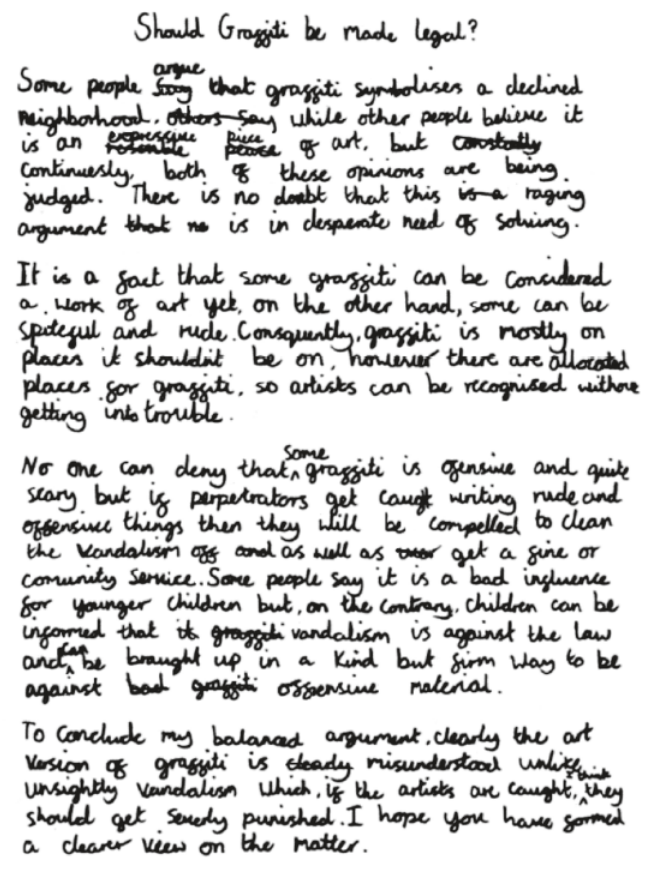 Should Graffiti be made legal?
Some people argue that graffiti symbolises a declined
neighborhood. others say, while other people believe it
is an expressive piece of art, but constatly
continuesly, both of these opinions are being
judged. There is no doubt that this is a raging
argument that is in desperate need of solving.
It is a fact that some graffiti can be considered
a work of art yet, on the other hand, some can be
spiteful and rude. Consquently, graffiti is mostly on
places it shouldn't be on, however there are allocated
places for graffiti, so artists can be recognised without
getting into trouble.
No one can deny that some graffiti is ofensive and quite
scary but if perpetrators get caugt writing rude and
offensive things then they will be compelled to clean
the vandalism off and as well as get a fine or
comunity service. Some people say it is a bad influence
for younger children but, on the contrary, children can be
informed that it graffiti vandalism is against the law
and can be braught up in a kind but firm way to be
against bad graffiti offensive material.
To conclude my balanced argument, clearly the art
version of graffiti is misunderstood unlike
unsightly vandalism which, if the artists are caught, I think they
should get severly punished. I hope you have formed
a clearer veiw on the matter.